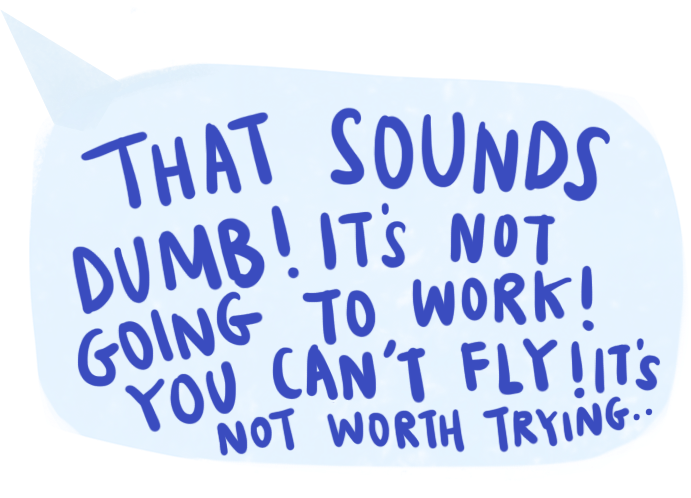 THAT SOUNDS
DUMB! IT'S NOT
GOING TO WORK!
YOU CAN'T FLY! IT'S
NOT WORTH TRYING..